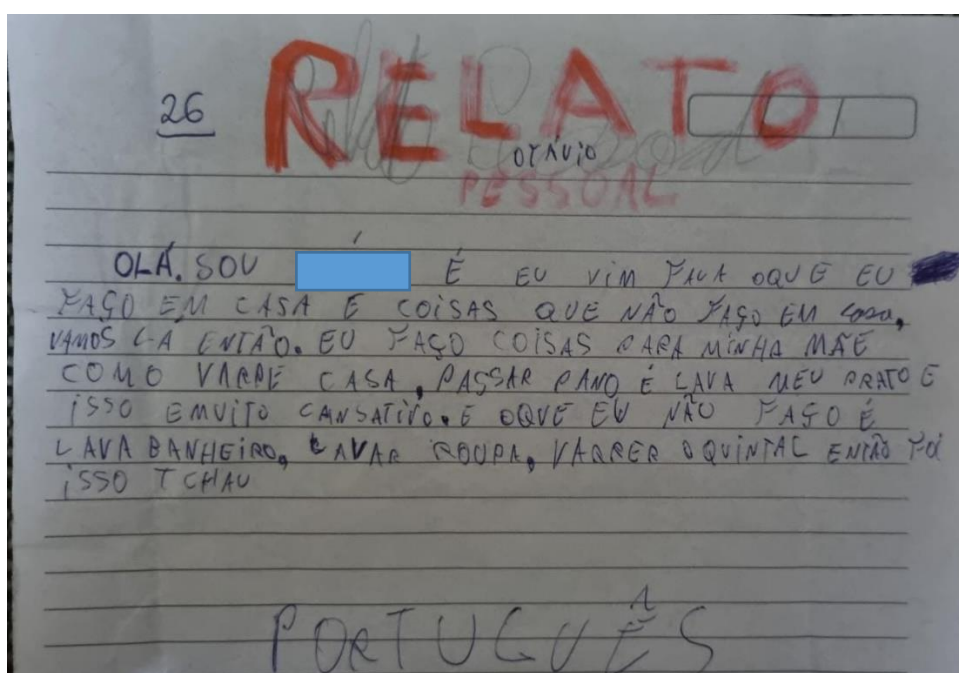 26
RELATO
OTÁVIO
PESSOAL
OLÁ. SOU É EU VIM FALA OQUE EU
FAÇO EM CASA E COISAS QUE NÃO FAÇO EM casa,
VAMOS LÁ ENTÃO. EU FAÇO COISAS PARA MINHA MÃE
COMO VARRE CASA, PASSAR PANO É LAVA MEU PRATO E
ISSO EMUITO CANSATIVO. E OQUE EU NÃO FAÇO É
LAVA BANHEIRO, LAVAR ROUPA, VARRER OQUINTAL ENTÃO FOI
ISSO TCHAU
PORTUGUÊS